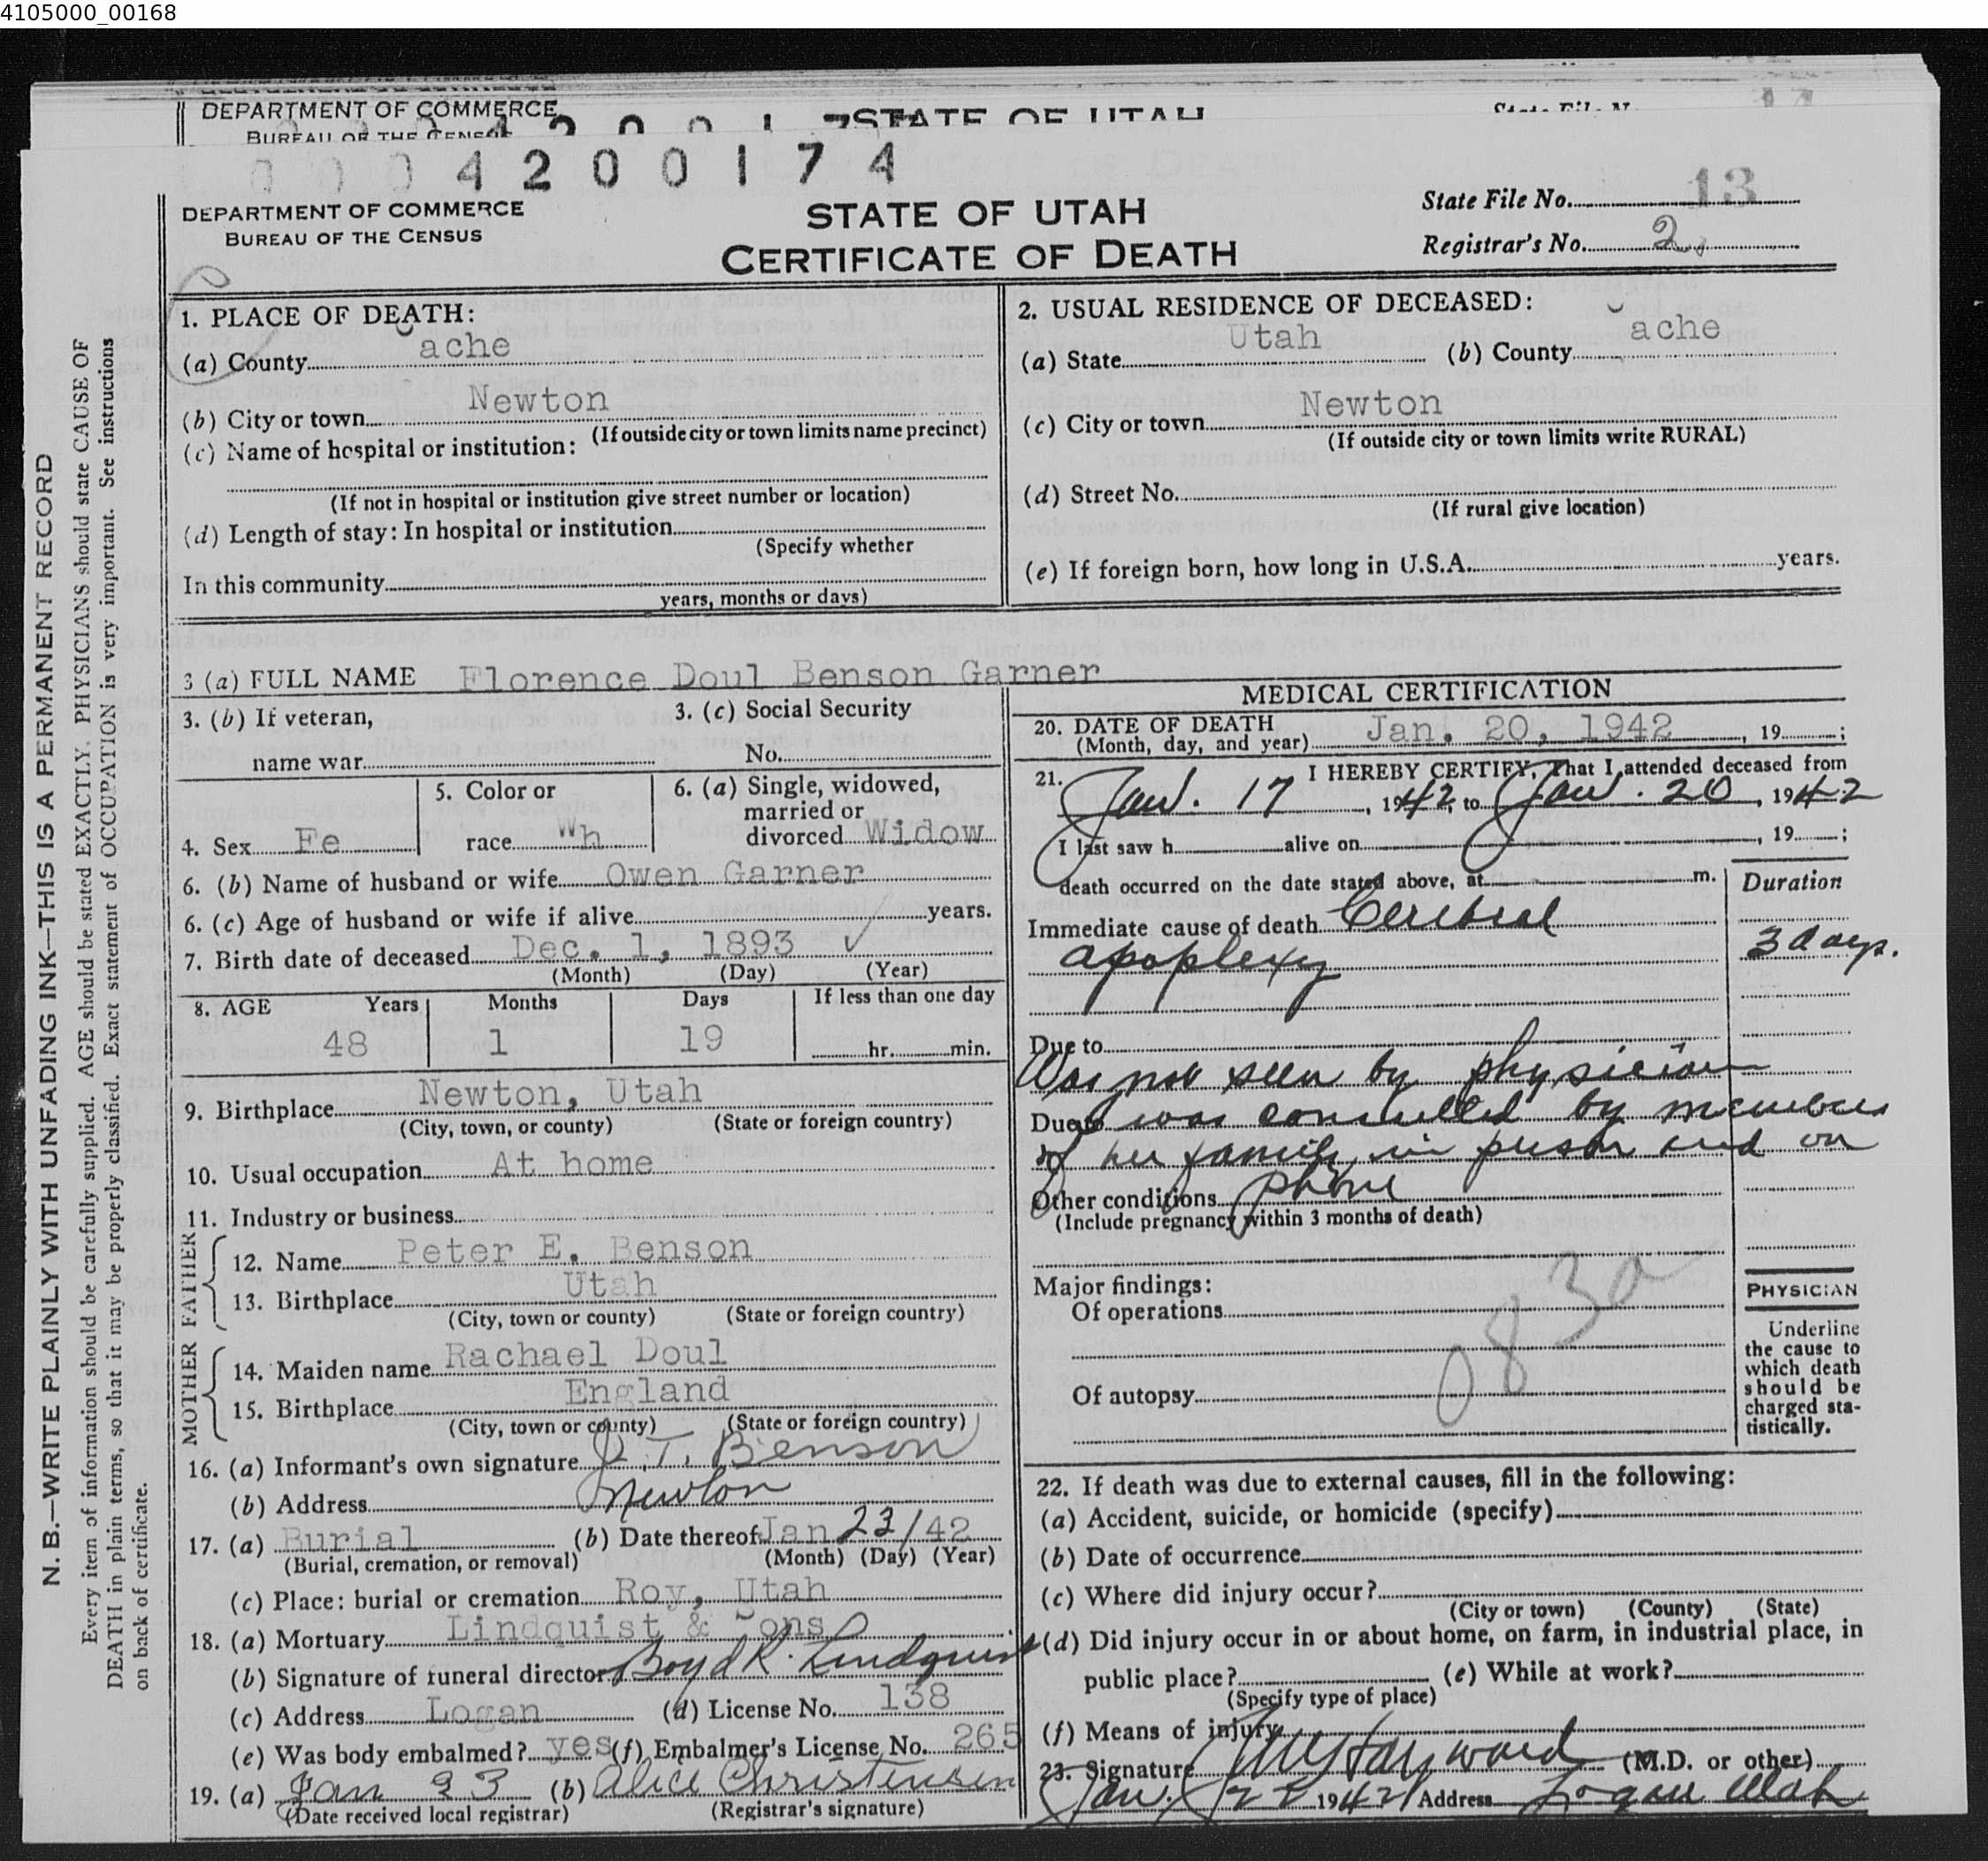 4105000_00168
DEPARTMENT OF COMMERCE
BUREAU OF THE CENSUS
STATE OF UTAH
State File No.
14
0004200174
DEPARTMENT OF COMMERCE
BUREAU OF THE CENSUS
STATE OF UTAH
CERTIFICATE OF DEATH
State File No. 13
Registrar's No. 2
N. B.—WRITE PLAINLY WITH UNFADING INK—THIS IS A PERMANENT RECORD
Every item of information should be carefully supplied. AGE should be stated EXACTLY. PHYSICIANS should state CAUSE OF
DEATH in plain terms, so that it may be properly classified. Exact statement of OCCUPATION is very important. See instructions
on back of certificate.
1. PLACE OF DEATH:
(a) County Cache
(b) City or town Newton
(If outside city or town limits name precinct)
(c) Name of hospital or institution:
(If not in hospital or institution give street number or location)
(d) Length of stay: In hospital or institution
(Specify whether
In this community
years, months or days)
2. USUAL RESIDENCE OF DECEASED:
(a) State Utah (b) County Cache
(c) City or town Newton
(If outside city or town limits write RURAL)
(d) Street No.
(If rural give location)
(e) If foreign born, how long in U.S.A. years.
3 (a) FULL NAME Florence Doul Benson Garner
3. (b) If veteran,
name war
3. (c) Social Security
No.
4. Sex Fe
5. Color or
race Wh
6. (a) Single, widowed,
married or
divorced Widow
6. (b) Name of husband or wife Owen Garner
6. (c) Age of husband or wife if alive years.
7. Birth date of deceased Dec. 1, 1893 ✓
(Month) (Day) (Year)
8. AGE Years Months Days If less than one day
48 1 19 hr. min.
9. Birthplace Newton, Utah
(City, town, or county) (State or foreign country)
10. Usual occupation At home
11. Industry or business
FATHER
12. Name Peter E. Benson
13. Birthplace Utah
(City, town or county) (State or foreign country)
MOTHER
14. Maiden name Rachael Doul
15. Birthplace England
(City, town or county) (State or foreign country)
16. (a) Informant's own signature T. Benson
(b) Address Newton
17. (a) Burial (b) Date thereof Jan 23/42
(Burial, cremation, or removal) (Month) (Day) (Year)
(c) Place: burial or cremation Roy, Utah
18. (a) Mortuary Lindquist & Sons
(b) Signature of funeral director Boyd R. Lindquist
(c) Address Logan (d) License No. 138
(e) Was body embalmed? yes (f) Embalmer's License No. 265
19. (a) Jan 23 (b) Alice Christensen
(Date received local registrar) (Registrar's signature)
MEDICAL CERTIFICATION
20. DATE OF DEATH
(Month, day, and year) Jan. 20, 1942, 19 ;
21. I HEREBY CERTIFY, That I attended deceased from
Jan. 17, 1942 to Jan. 20, 1942
I last saw h alive on , 19 ;
death occurred on the date stated above, at m.
Duration
Immediate cause of death Cerebral
apoplexy
3 days.
Due to
Was not seen by physician
Due to
was consulted by members
of her family in person and on
Other conditions phone
(Include pregnancy within 3 months of death)
Major findings:
Of operations
083a
Of autopsy
PHYSICIAN
Underline
the cause to
which death
should be
charged sta-
tistically.
22. If death was due to external causes, fill in the following:
(a) Accident, suicide, or homicide (specify)
(b) Date of occurrence
(c) Where did injury occur?
(City or town) (County) (State)
(d) Did injury occur in or about home, on farm, in industrial place, in
public place? (e) While at work?
(Specify type of place)
(f) Means of injury
23. Signature Hayward (M.D. or other)
Jan. 22 1942 Address Logan Utah